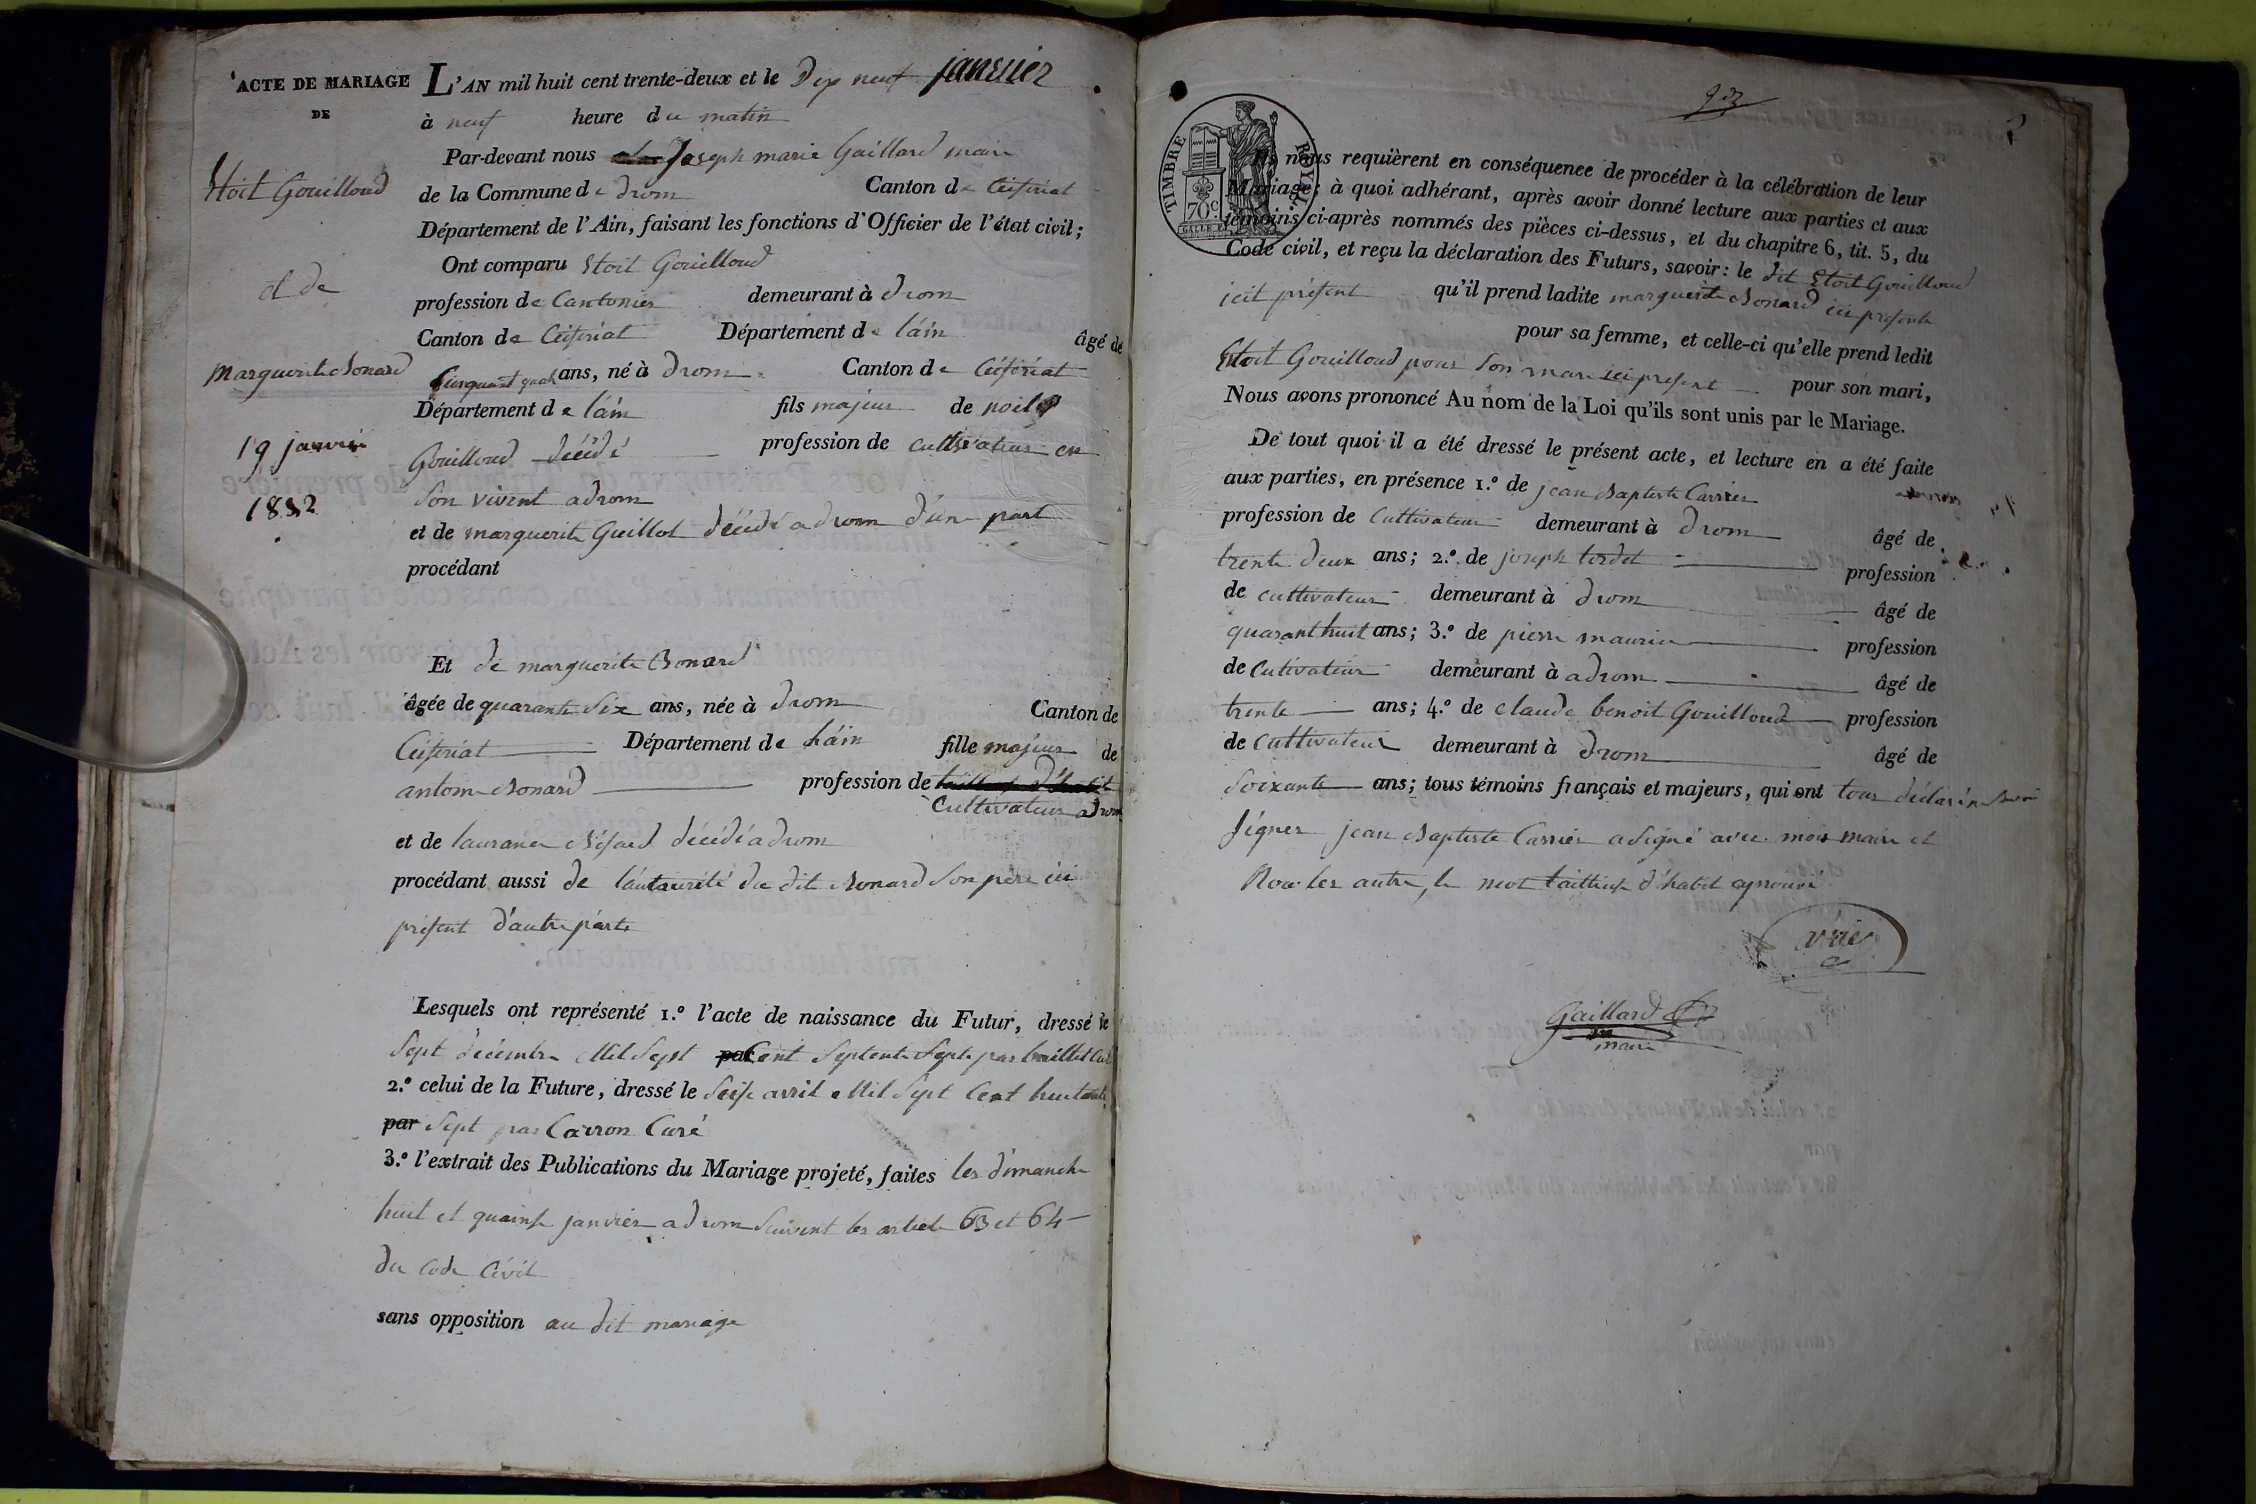 ACTE DE MARIAGE
DE
Etoit Gouilloud
et de
marguerite Bonard
19 janvier
1832
L'AN mil huit cent trente-deux et le Dix neuf janvier
à neuf heure du matin
Par-devant nous Joseph marie Gaillard maire
de la Commune de drom Canton de Ceiseriat
Département de l'Ain, faisant les fonctions d'Officier de l'état civil;
Ont comparu Etoit Gouilloud
profession de Cantonier demeurant à drom
Canton de Ceiseriat Département de láin âgé de
Cinquant quatr ans, né à drom Canton de Céiseriat
Département de láin fils majeur de noil
Gouilloud décédé profession de cultivateur en
Son vivent a drom
et de marguerite Guillot décédé a drom d'une part
procédant
Et de marguerite Bonard
âgée de quarante Six ans, née à drom Canton de
Ceiseriat Département de Láin fille majeur de
antoine Bonard profession de tailleur d'habit
Cultivateur a drom
et de laurance décédé a drom
procédant aussi de láutaurité du dit Bonard Son pere ici
présent d'autre parte
Lesquels ont représenté 1.º l'acte de naissance du Futur, dressé le
Sept décembre Mil Sept par Cent Septente Septe par
2.º celui de la Future, dressé le Seise avril Mil Sept Cent huitante
par Sept par Carron Curé
3.º l'extrait des Publications du Mariage projeté, faites les dimanche
huit et quainse janvier a drom Suivent les article 63 et 64
du Code Civil
sans opposition au dit mariage
TIMBRE ROYAL
70 c
Ils nous requièrent en conséquence de procéder à la célébration de leur
Mariage; à quoi adhérant, après avoir donné lecture aux parties et aux
témoins ci-après nommés des pièces ci-dessus, et du chapitre 6, tit. 5, du
Code civil, et reçu la déclaration des Futurs, savoir: le dit Etoit Gouilloud
icit présent qu'il prend ladite marguerite Bonard ici presente
pour sa femme, et celle-ci qu'elle prend ledit
Etoit Gouilloud pour Son mari ici present pour son mari,
Nous avons prononcé Au nom de la Loi qu'ils sont unis par le Mariage.
De tout quoi il a été dressé le présent acte, et lecture en a été faite
aux parties, en présence 1.º de jean Baptiste Carrier
profession de Cultivateur demeurant à drom âgé de
trente deux ans; 2.º de joseph tordet profession
de cultivateur demeurant à drom âgé de
quarant huit ans; 3.º de pierre maurier profession
de Cutivateur demeurant à adrom âgé de
trente ans; 4.º de claude benoit Gouilloud profession
de Cultivateur demeurant à drom âgé de
Soixante ans; tous témoins français et majeurs, qui ont tous déclaré
Signer jean Baptiste Carrier a Signé avec mois maire et
Non les autre, le mot tailleur d'habit
Gaillard
maire